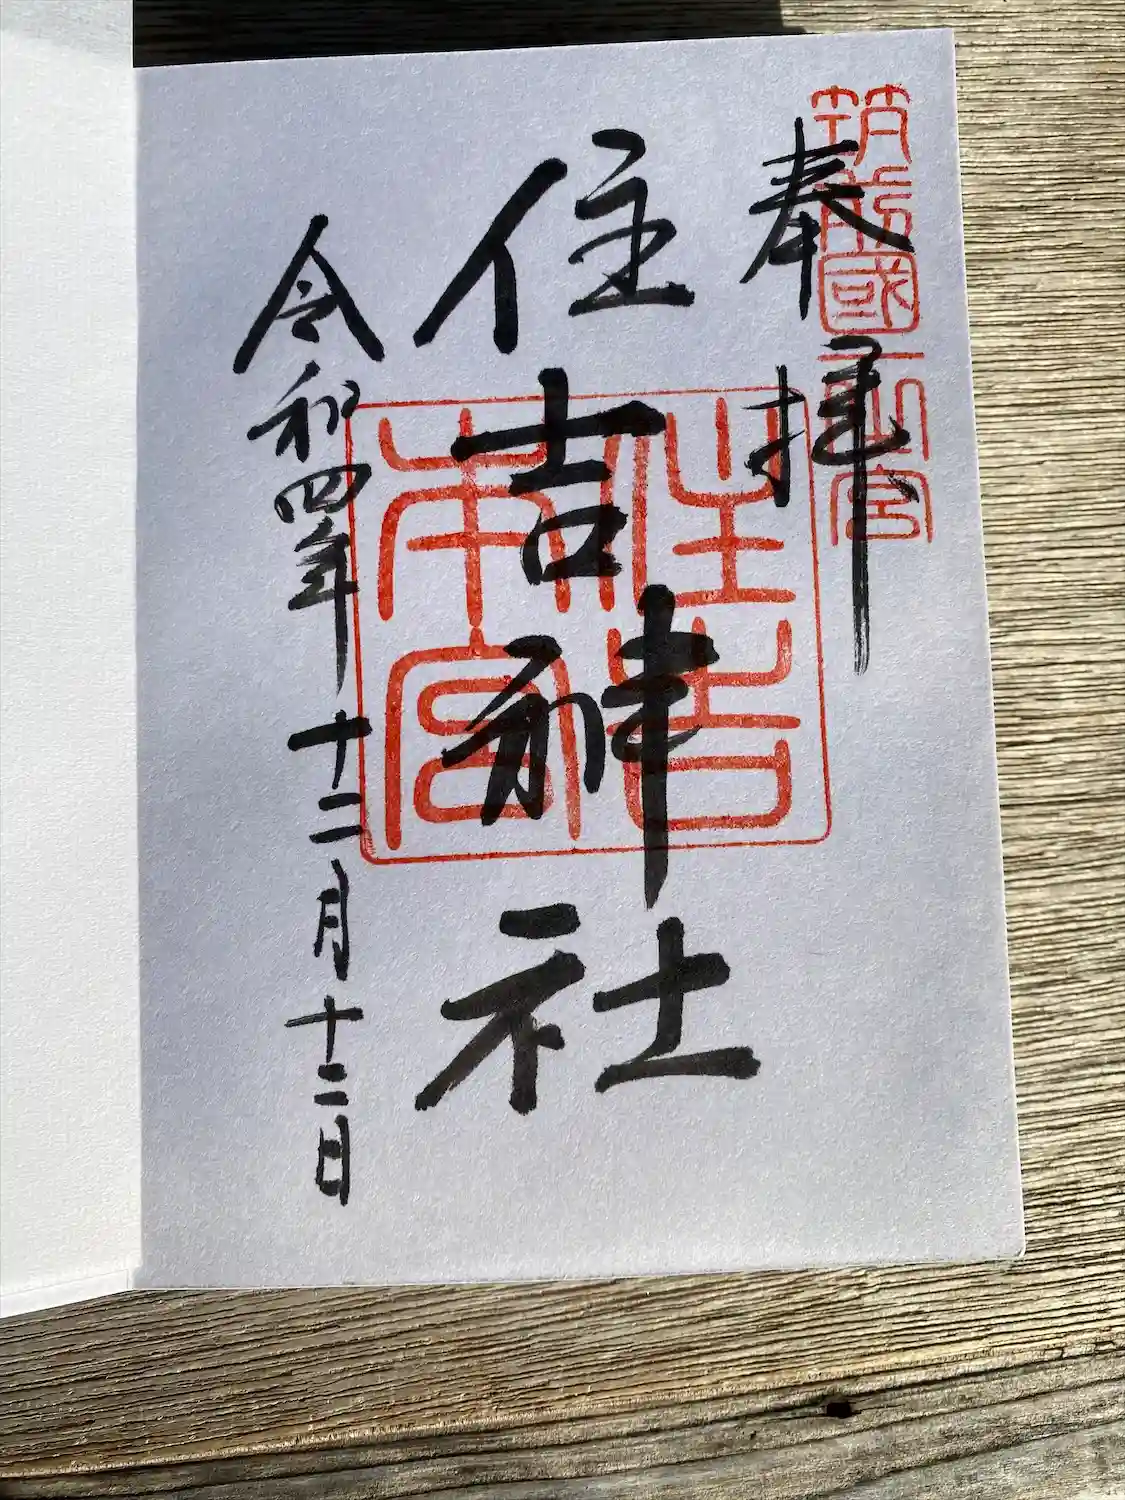 筑前國一之宮
奉拝
住吉神社
住吉本宮
令和四年十二月十二日